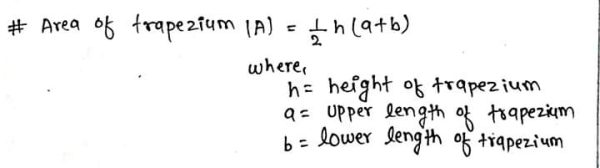 # Area of trapezium (A) = 1/2 h (a+b)
where,
h = height of trapezium
a = upper length of trapezium
b = lower length of trapezium